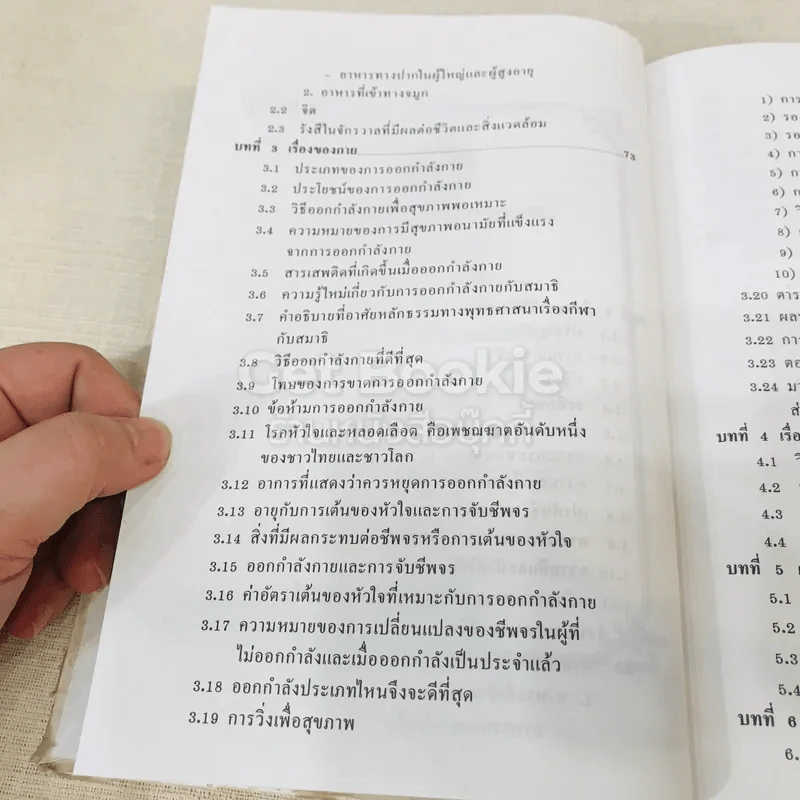 - อาหารทางปากในผู้ใหญ่และผู้สูงอายุ
2. อาหารที่เข้าทางจมูก
2.2 จิต
2.3 รังสีในจักรวาลที่มีผลต่อชีวิตและสิ่งแวดล้อม
บทที่ 3 เรื่องของกาย 73
3.1 ประเภทของการออกกำลังกาย
3.2 ประโยชน์ของการออกกำลังกาย
3.3 วิธีออกกำลังกายเพื่อสุขภาพพอเหมาะ
3.4 ความหมายของการมีสุขภาพอนามัยที่แข็งแรง
จากการออกกำลังกาย
3.5 สารเสพติดที่เกิดขึ้นเมื่อออกกำลังกาย
3.6 ความรู้ใหม่เกี่ยวกับการออกกำลังกายกับสมาธิ
3.7 คำอธิบายที่อาศัยหลักธรรมทางพุทธศาสนาเรื่องกีฬา
กับสมาธิ
3.8 วิธีออกกำลังกายที่ดีที่สุด
3.9 โทษของการขาดการออกกำลังกาย
3.10 ข้อห้ามการออกกำลังกาย
3.11 โรคหัวใจและหลอดเลือด คือเพชฌฆาตอันดับหนึ่ง
ของชาวไทยและชาวโลก
3.12 อาการที่แสดงว่าควรหยุดการออกกำลังกาย
3.13 อายุกับการเต้นของหัวใจและการจับชีพจร
3.14 สิ่งที่มีผลกระทบต่อชีพจรหรือการเต้นของหัวใจ
3.15 ออกกำลังกายและการจับชีพจร
3.16 ค่าอัตราเต้นของหัวใจที่เหมาะกับการออกกำลังกาย
3.17 ความหมายของการเปลี่ยนแปลงของชีพจรในผู้ที่
ไม่ออกกำลังและเมื่อออกกำลังเป็นประจำแล้ว
3.18 ออกกำลังประเภทไหนจึงจะดีที่สุด
3.19 การวิ่งเพื่อสุขภาพ
Get Bookie
ร้านหนังสือบุ๊กกี้
1) กา
2) รอ
3) รอ
4) ก
5) ก
6) ก
7)
8)
9)
10)
3.20 ตาร
3.21 ผล
3.22 กา
3.23 ตอ
3.24 มา
ส่
บทที่ 4 เรื่อ
4.1
4.2
4.3
4.4
บทที่ 5
5.1
5.2
5.3
5.4
บทที่ 6
6.